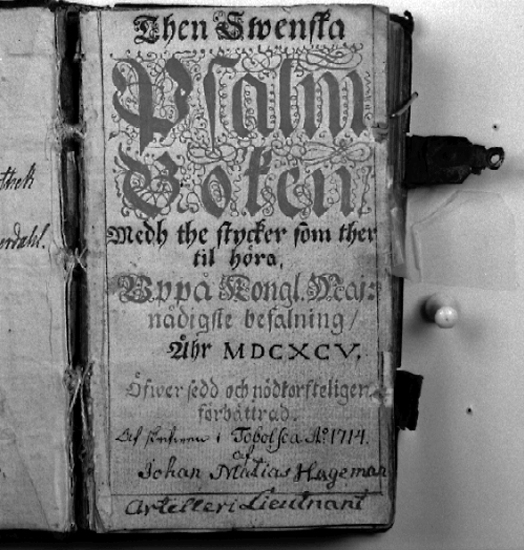 Then Swenska
Psalm
Boken
Medh the stycker som ther
til höra,
Uppå Kongl. Maj:
nådigste befalning/
Åhr MDCXCV.
Öfwersedd och nödtorfteligen
förbättrad.
Af skrifwen i Tobolsca Aº. 1714.
af
Johan Matias Hageman
Artelleri Lieutnant
thek
erdahl.